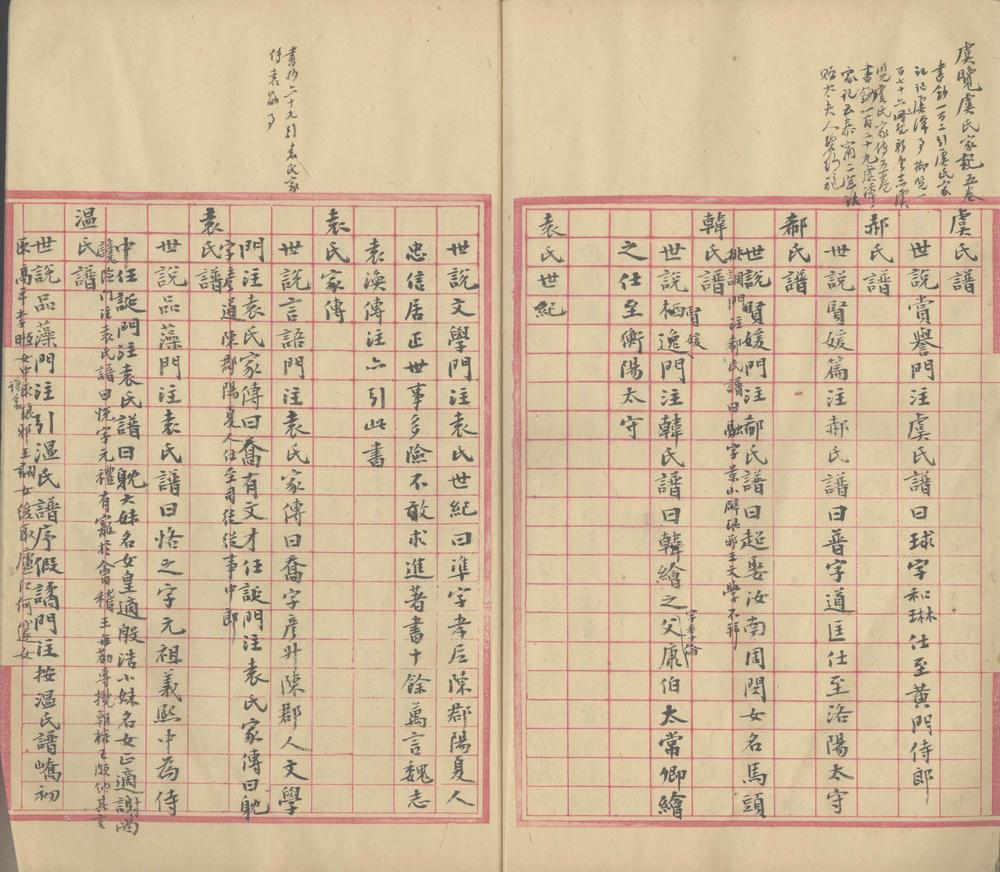 虞覽虞氏家記五卷
書鈔一百二引虞氏家
記記虞潭事御覽一
虞氏譜
世說賞譽門注虞氏譜曰球字和琳仕至黃門侍郎
郝氏譜
世說賢媛篇注郝氏譜曰普字道匡仕至洛陽太守
郗氏譜
世說賢媛門注郗氏譜曰超娶汝南周閔女名馬頭
排調門注郗氏譜曰融字景山辟琅邪王文學不拜
韓氏譜
賢媛
世說栖逸門注韓氏譜曰韓繪之父康伯太常卿繪
字季倫
之仕至衡陽太守
袁氏世紀
書鈔六十九引袁氏家
傳袁勗事
世說文學門注袁氏世紀曰準字孝尼陳郡陽夏人
忠信居正世事多險不敢求進著書十餘萬言魏志
袁渙傳注亦引此書
袁氏家傳
世說言語門注袁氏家傳曰喬字彥升陳郡人文學
門注袁氏家傳曰喬有文才任誕門注袁氏家傳曰耽
字彥道陳郡陽夏人仕至司徒從事中郎
袁氏譜
世說品藻門注袁氏譜曰恪之字元祖義熙中為侍
中任誕門注袁氏譜曰耽大妹名女皇適殷浩小妹名女正適謝尚
讒險門注袁氏譜曰悅字元禮有寵於會稽王每勸專攬朝權王頗納其言
温氏譜
世說品藻門注引温氏譜序假譎門注按温氏譜嶠初
取高平李暅女中取琅邪王詡女後取廬江何邃女